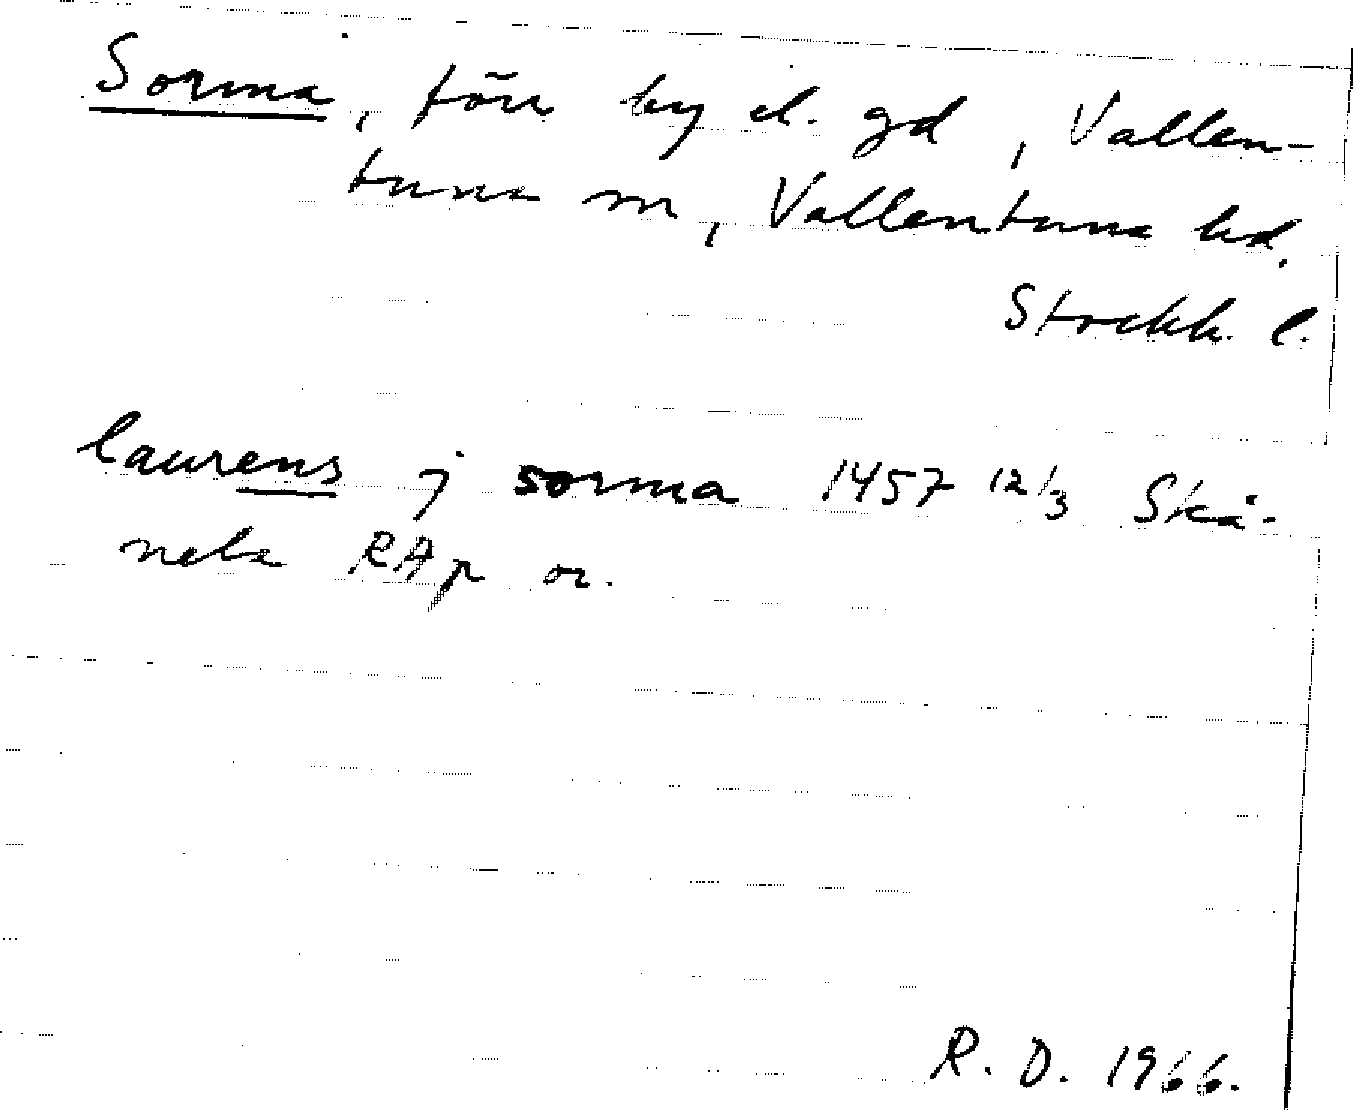 Sorma, förr by el. gd, Vallen-
tuna sn, Vallentuna hd.
Stockh. l.
laurens j sorma 1457 12/3 Skå-
nela RAp or.
R. D. 1966.